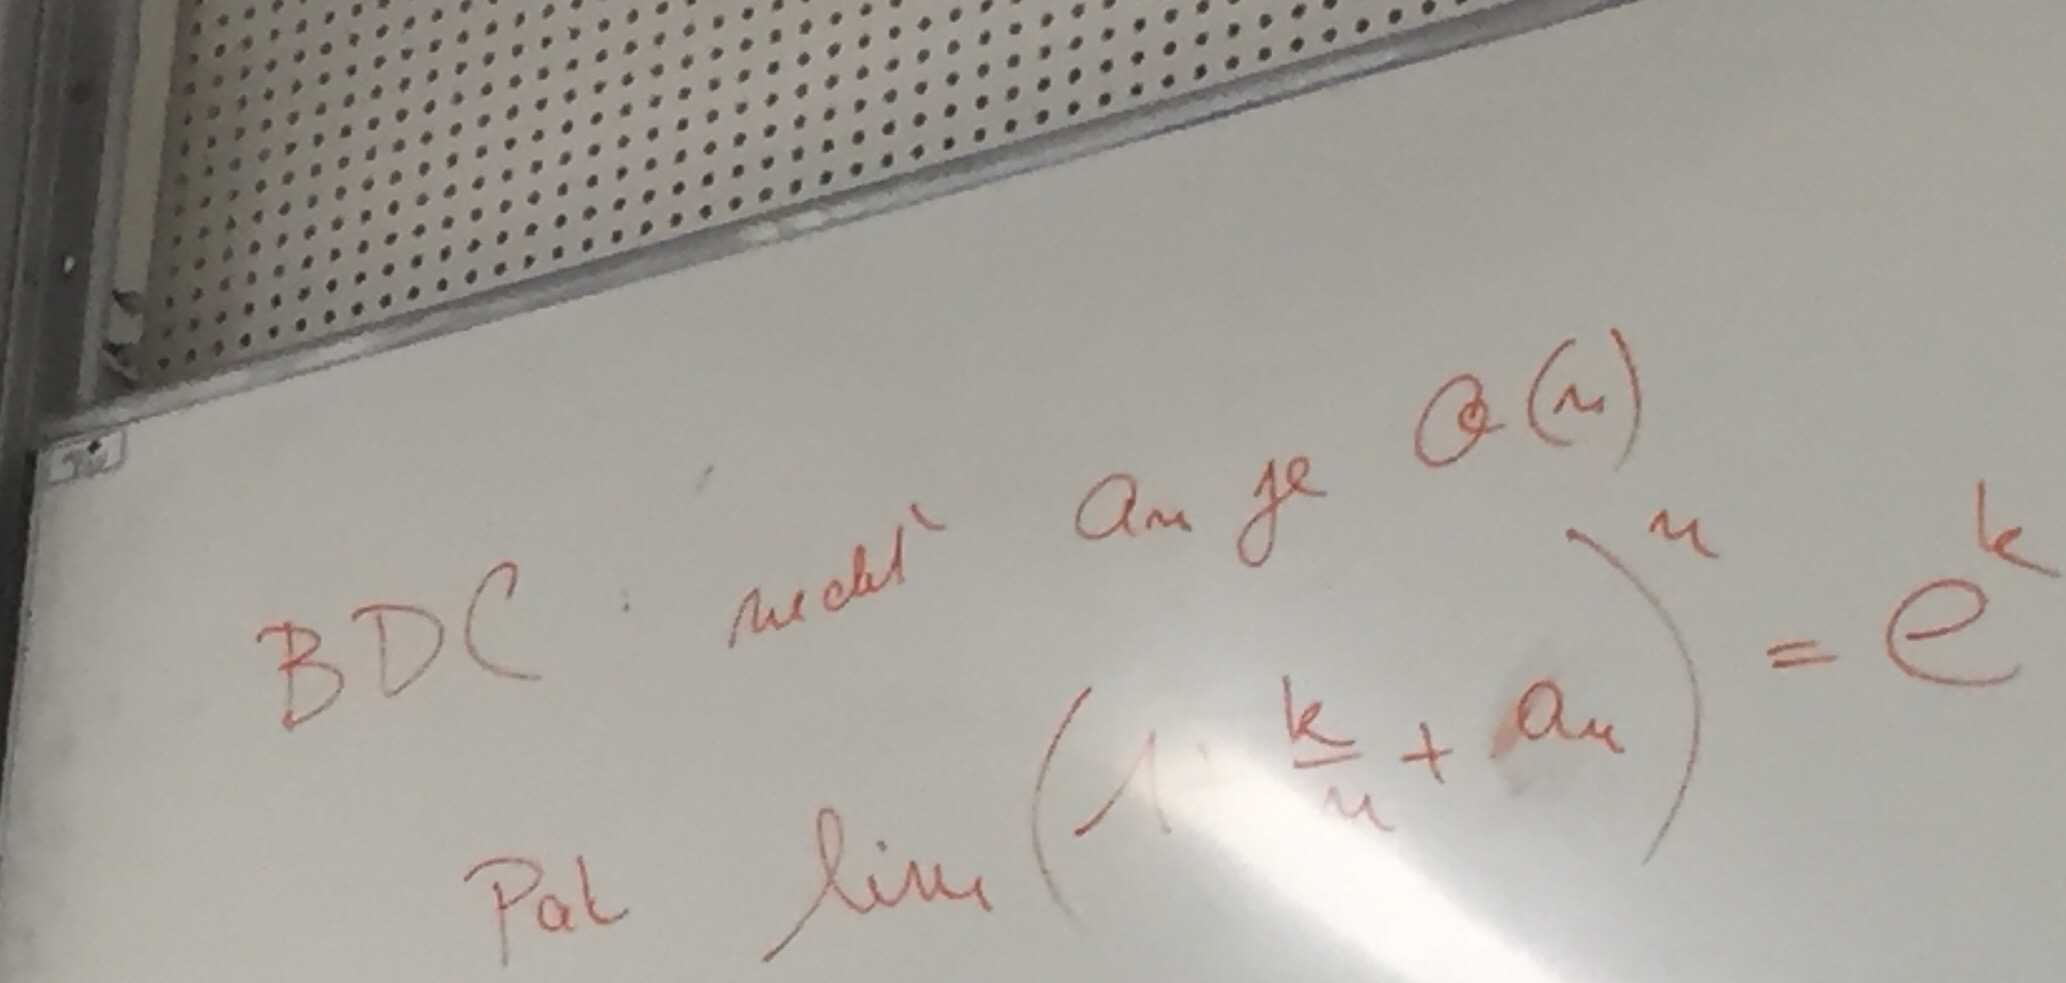 BDC: nechť an je O(n)
Pak lim (1 + k/n + an)^n = e^k